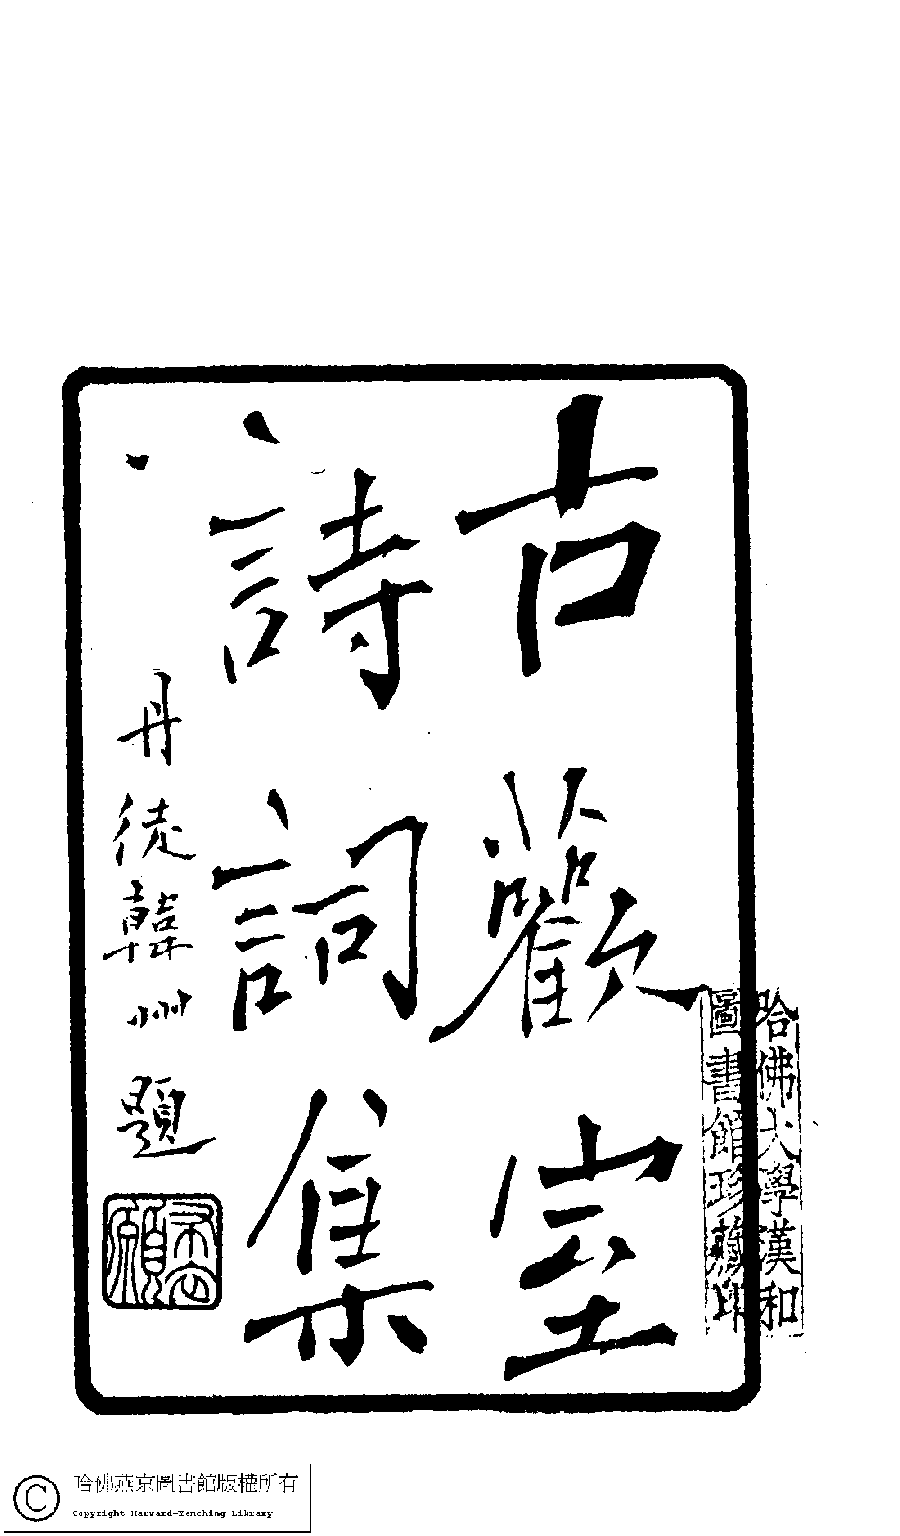 古歡室
詩詞集
丹徒韓州題
哈佛大學漢和
圖書館珍藏印
哈佛燕京圖書館版權所有
Copyright Harvard-Yenching Library